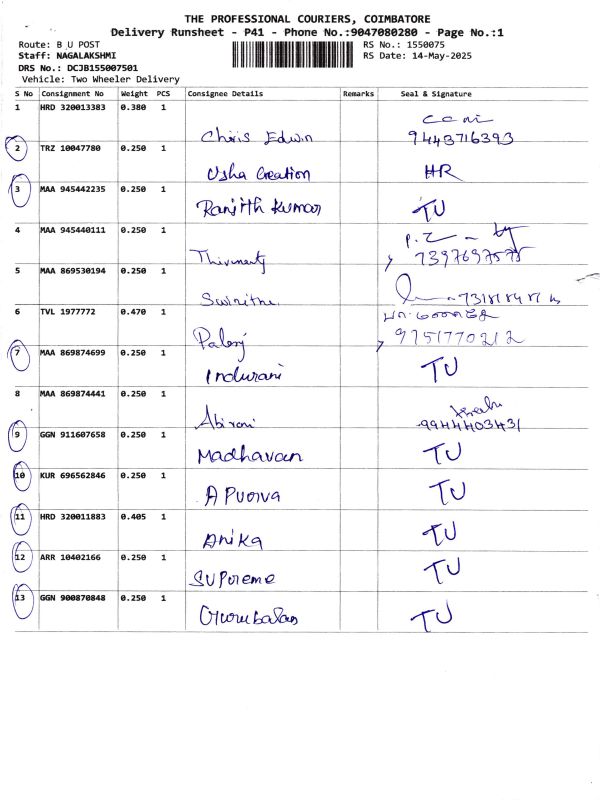 THE PROFESSIONAL COURIERS, COIMBATORE
Delivery Runsheet - P41 - Phone No.:9047080280 - Page No.:1
Route: B U POST
RS No.: 1550075
Staff: NAGALAKSHMI
RS Date: 14-May-2025
DRS No.: DCJB155007501
Vehicle: Two Wheeler Delivery
S No Consignment No Weight PCS Consignee Details Remarks Seal & Signature
1 HRD 320013383 0.380 1
Chris Edwin 9443716393
2 TRZ 10047780 0.250 1
Usha Creation HR
3 MAA 945442235 0.250 1
Ranjith Kumar TU
4 MAA 945440111 0.250 1
5 MAA 869530194 0.250 1
6 TVL 1977772 0.470 1
9751770212
7 MAA 869874699 0.250 1
Indurani TU
8 MAA 869874441 0.250 1
Abirami 9944403431
9 GGN 911607658 0.250 1
Madhavan TU
10 KUR 696562846 0.250 1
Apurva TU
11 HRD 320011883 0.405 1
Anika TU
12 ARR 10402166 0.250 1
Supreme TU
13 GGN 900870848 0.250 1
TU